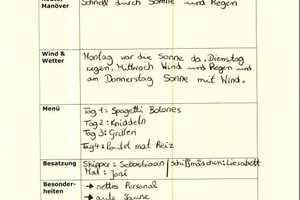 Manöver
Schnell durch Sonne und Regen
Wind &
Wetter
Montag war die Sonne da. Dienstag
regen, Mittwoch Wind und Regen und
am Donnerstag Sonne mit Wind.
Menü
Tag 1: Spagetti Bolones
Tag 2: Kniddeln
Tag 3: Grillen
Tag 4: Poulet mat Reiz
Besatzung
Skipper: Sebastiaan / Schiffmädchen: Liesabett
Mat: Joni
Besonder-
heiten
→ nettes Personal
→ gute Laune